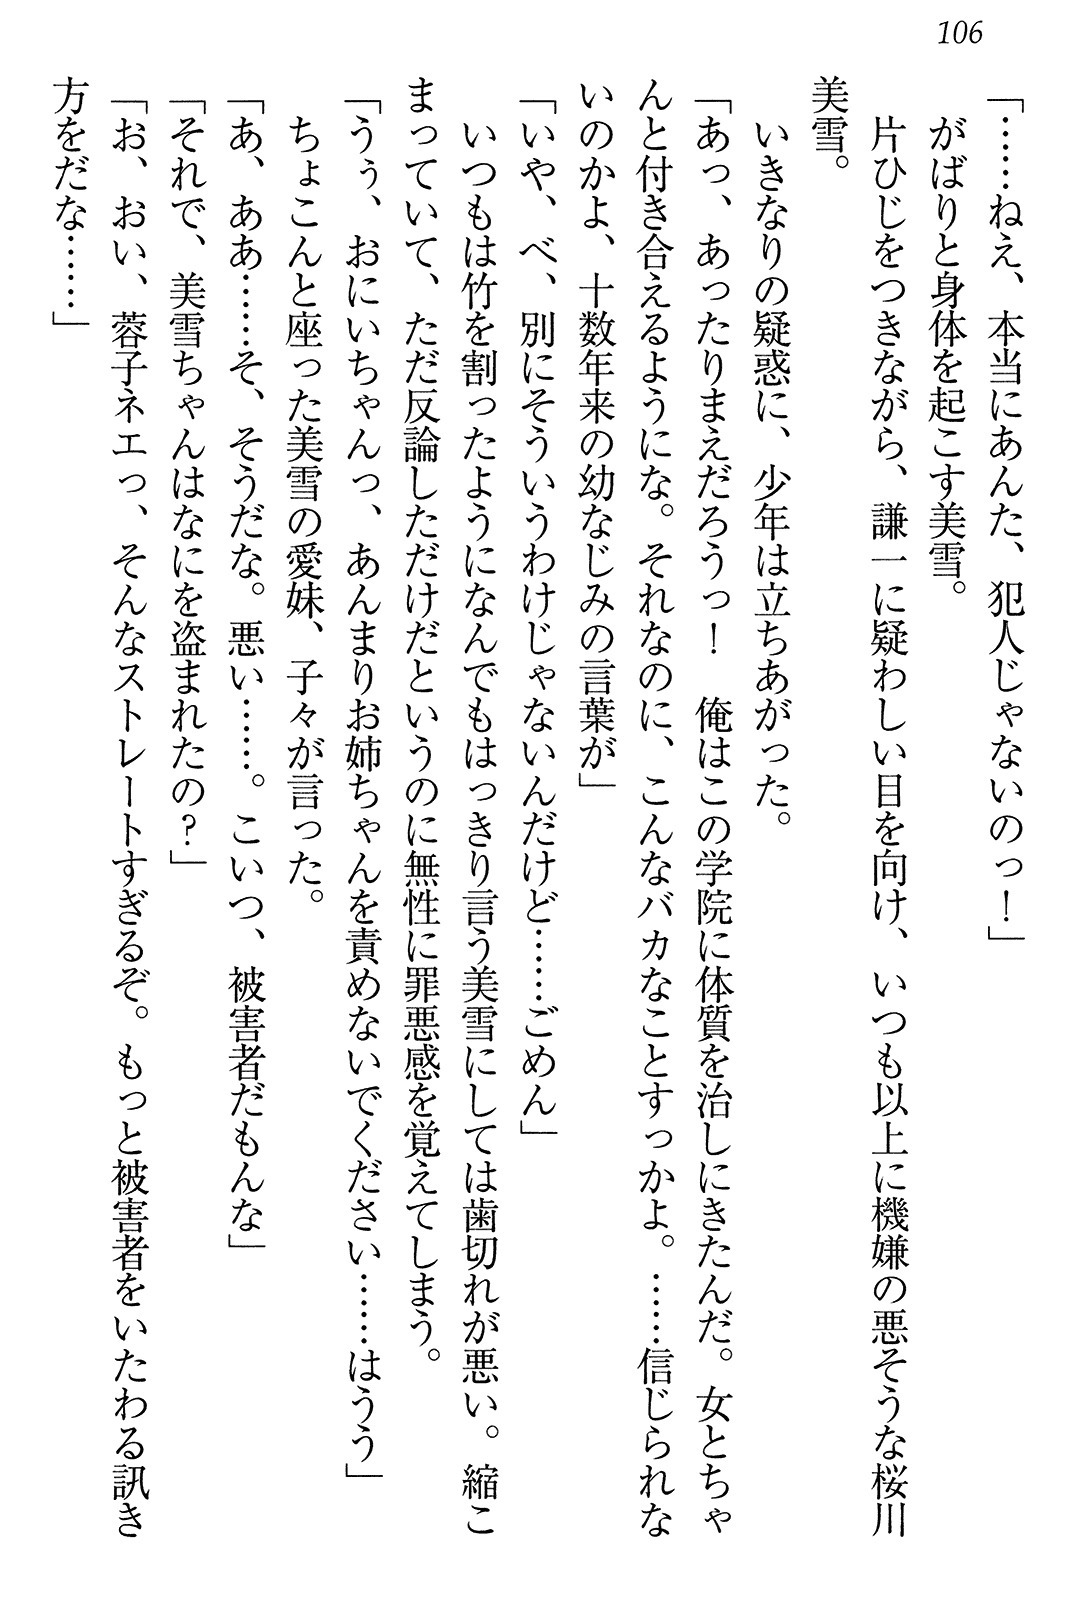 106
「……ねえ、本当にあんた、犯人じゃないのっ！」
がばりと身体を起こす美雪。
片ひじをつきながら、謙一に疑わしい目を向け、いつも以上に機嫌の悪そうな桜川
美雪。
いきなりの疑惑に、少年は立ちあがった。
「あっ、あったりまえだろうっ！　俺はこの学院に体質を治しにきたんだ。女とちゃ
んと付き合えるようにな。それなのに、こんなバカなことすっかよ。……信じられな
いのかよ、十数年来の幼なじみの言葉が」
「いや、べ、別にそういうわけじゃないんだけど……ごめん」
いつもは竹を割ったようになんでもはっきり言う美雪にしては歯切れが悪い。縮こ
まっていて、ただ反論しただけだというのに無性に罪悪感を覚えてしまう。
「うぅ、おにいちゃんっ、あんまりお姉ちゃんを責めないでください……はうう」
ちょこんと座った美雪の愛妹、子々が言った。
「あ、ああ……そ、そうだな。悪い……。こいつ、被害者だもんな」
「それで、美雪ちゃんはなにを盗まれたの？」
「お、おい、蓉子ネエっ、そんなストレートすぎるぞ。もっと被害者をいたわる訊き
方をだな……」